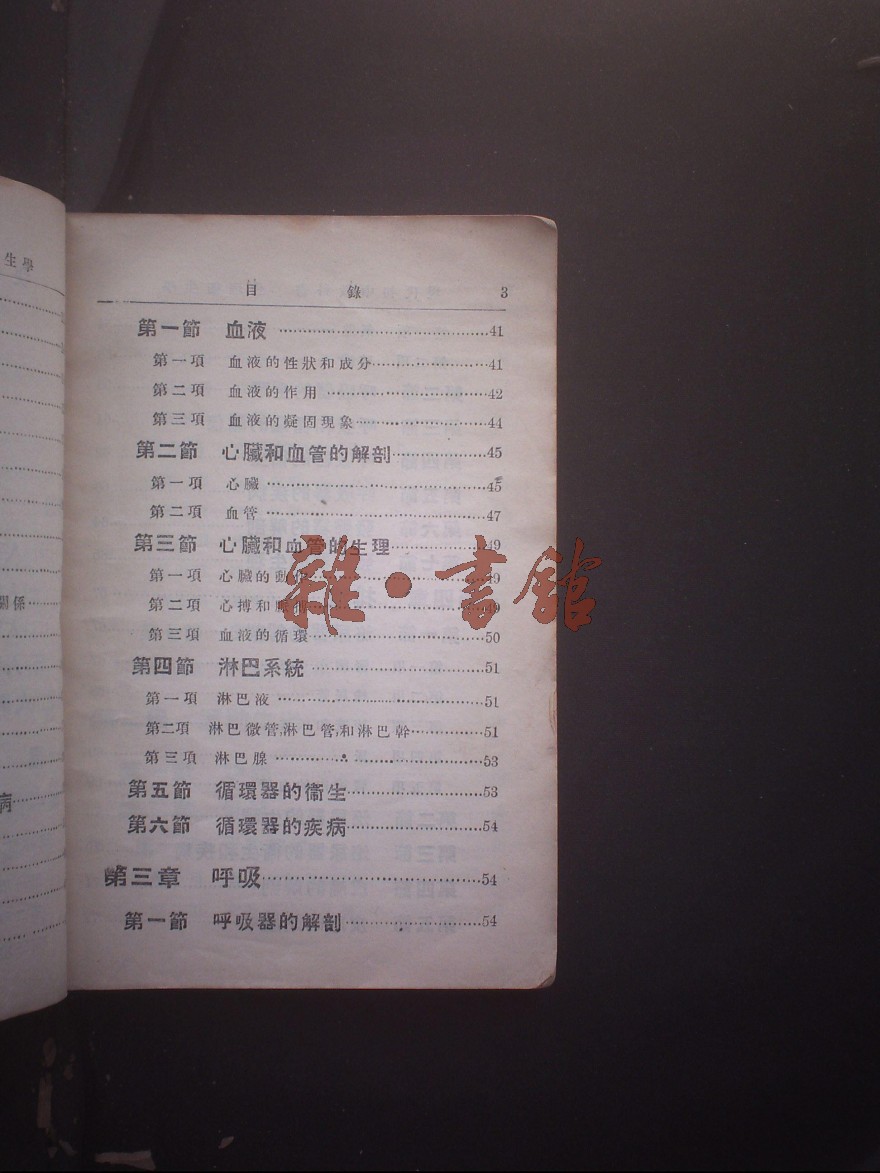 生學
關係
病
目 錄 3
第一節 血液 41
第一項 血液的性狀和成分 41
第二項 血液的作用 42
第三項 血液的凝固現象 44
第二節 心臟和血管的解剖 45
第一項 心臟 45
第二項 血管 47
第三節 心臟和血管的生理 49
第一項 心臟的動 49
第二項 心搏和 49
第三項 血液的循環 50
第四節 淋巴系統 51
第一項 淋巴液 51
第二項 淋巴微管,淋巴管,和淋巴幹 51
第三項 淋巴腺 53
第五節 循環器的衞生 53
第六節 循環器的疾病 54
第三章 呼吸 54
第一節 呼吸器的解剖 54
雜·書館